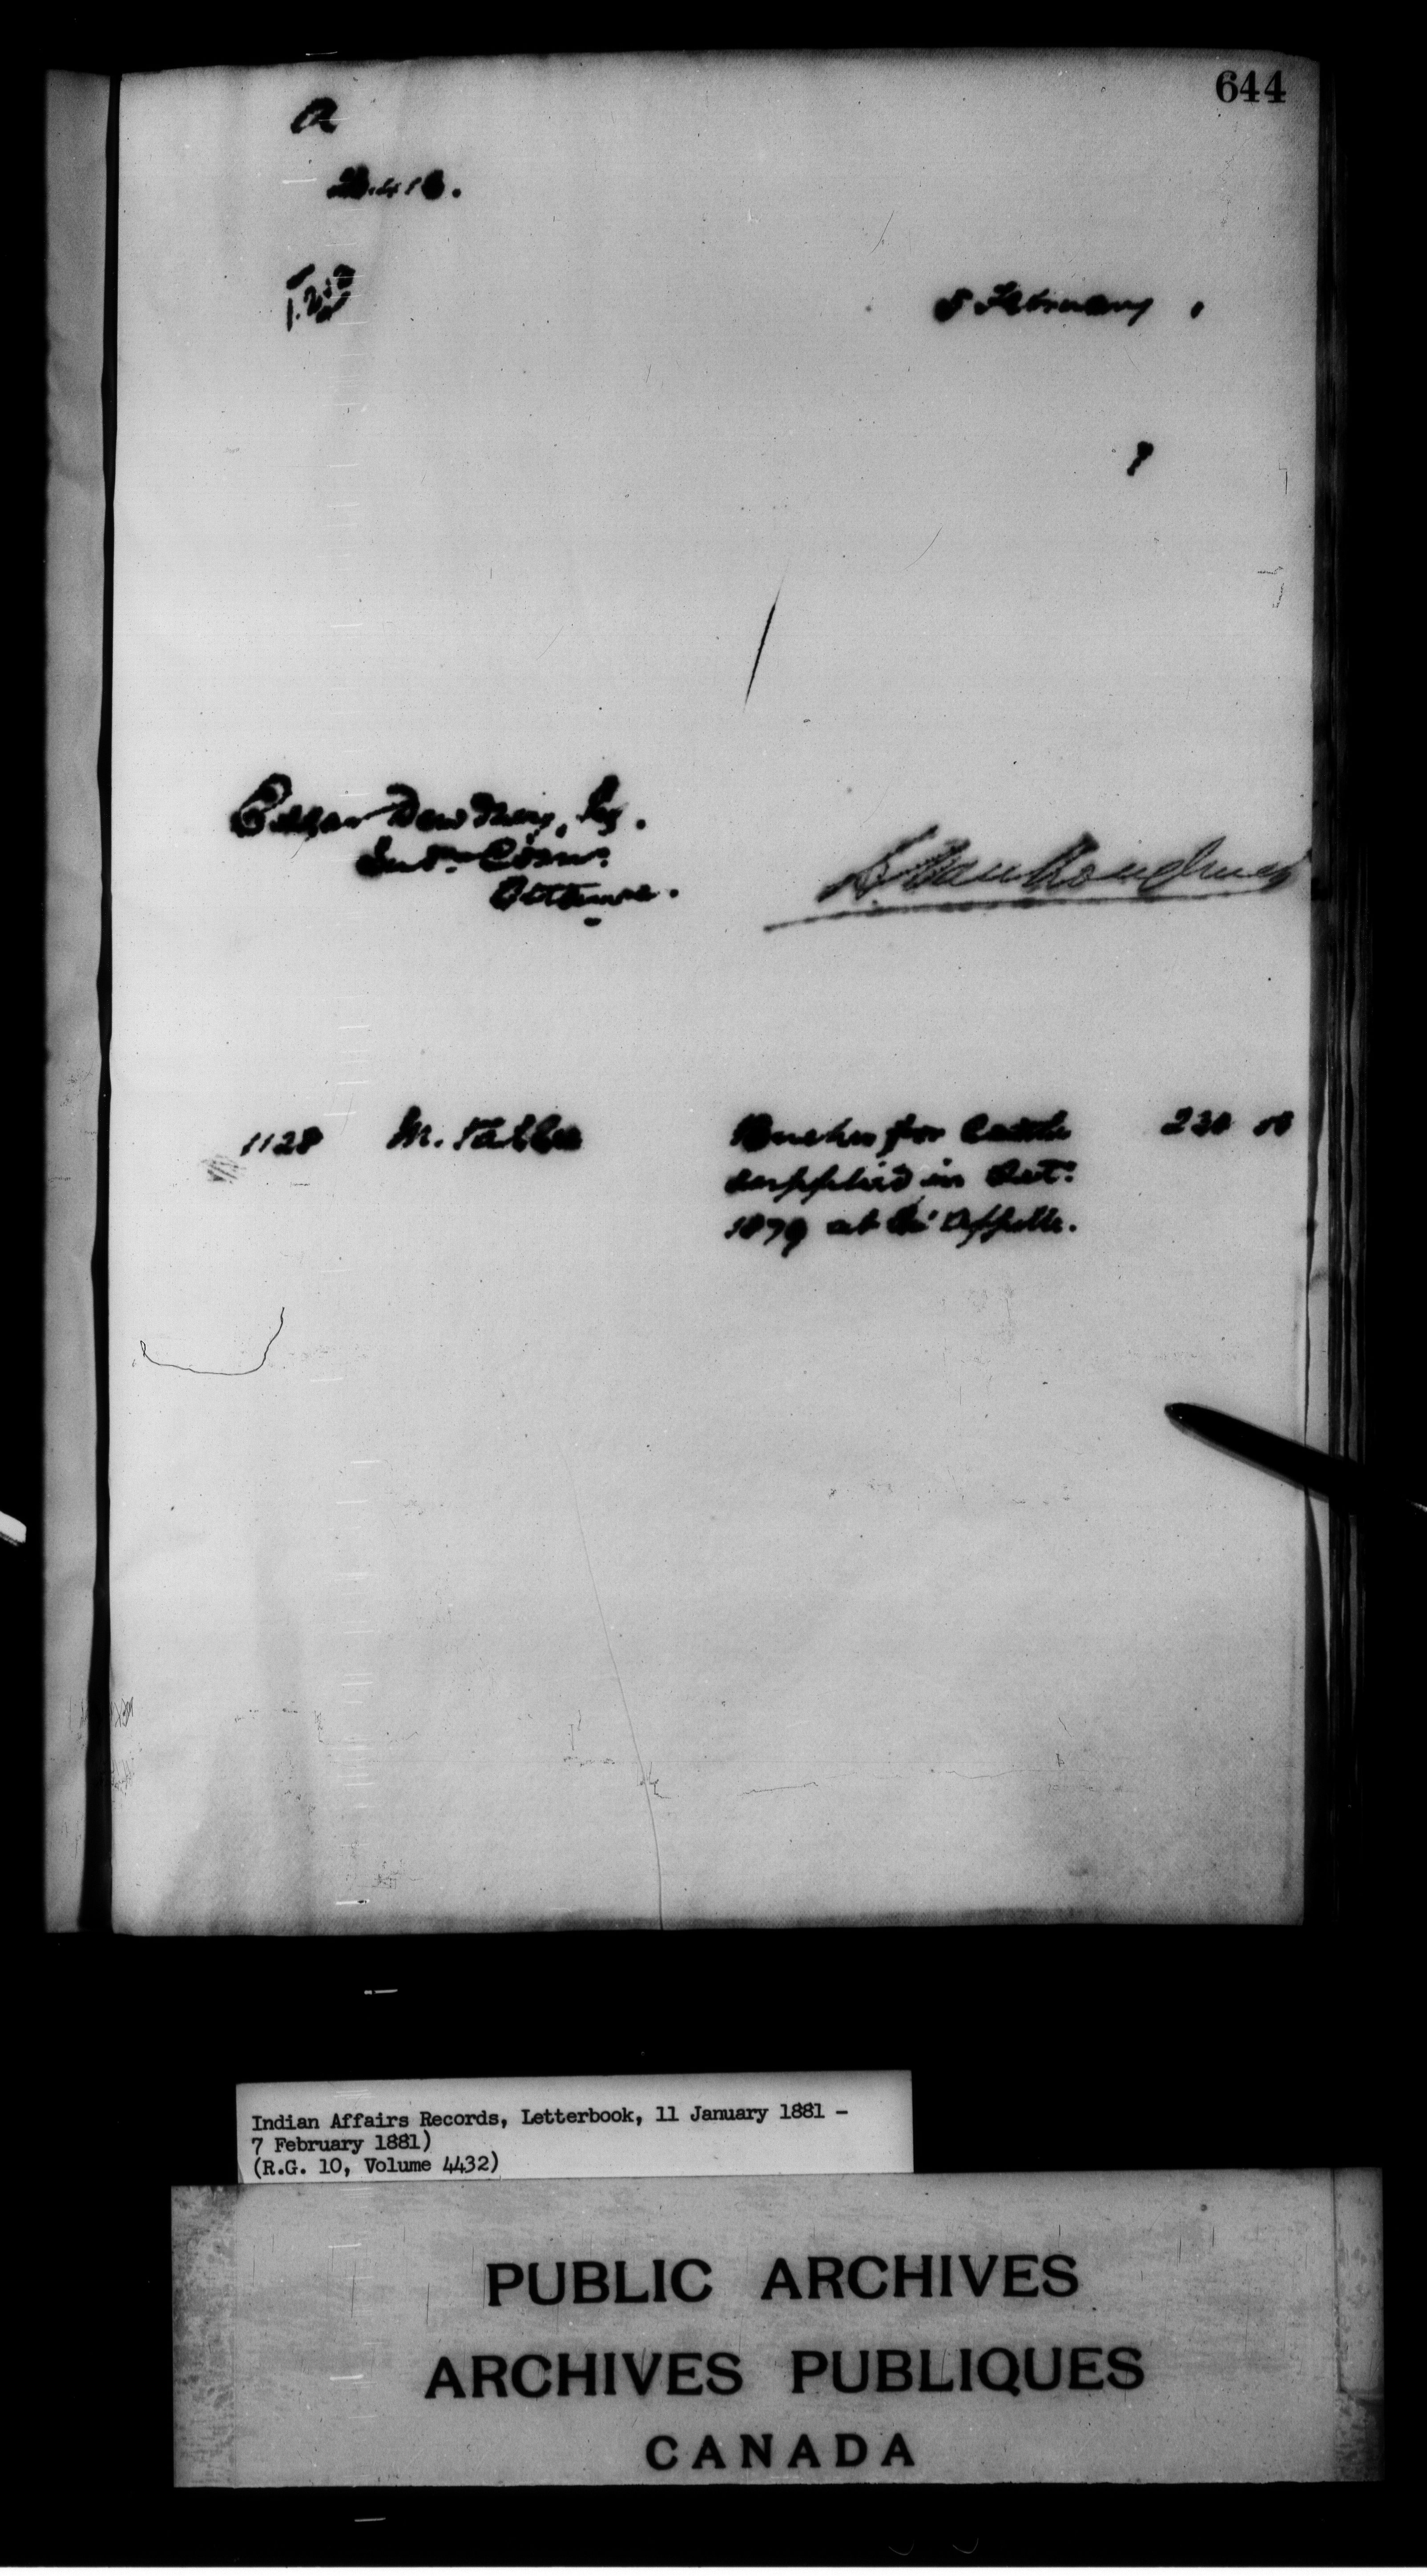 644
a
5 February
Edgar Dewdney, Esq.
Ind.n Com.r
Ottawa.
L. Vankoughnet
1128 M. for Cattle 220 00
supplied in Oct.
1879 at Qu'Appelle.
Indian Affairs Records, Letterbook, 11 January 1881 -
7 February 1881)
(R.G. 10, Volume 4432)
PUBLIC ARCHIVES
ARCHIVES PUBLIQUES
CANADA